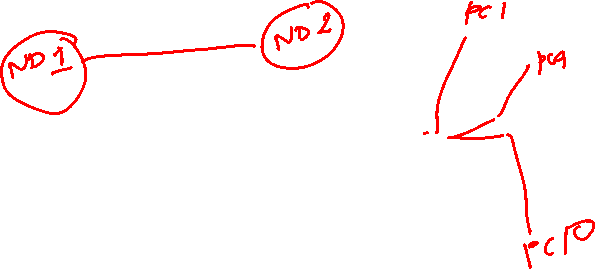 ND1
ND2
PC1
PC9
PC10